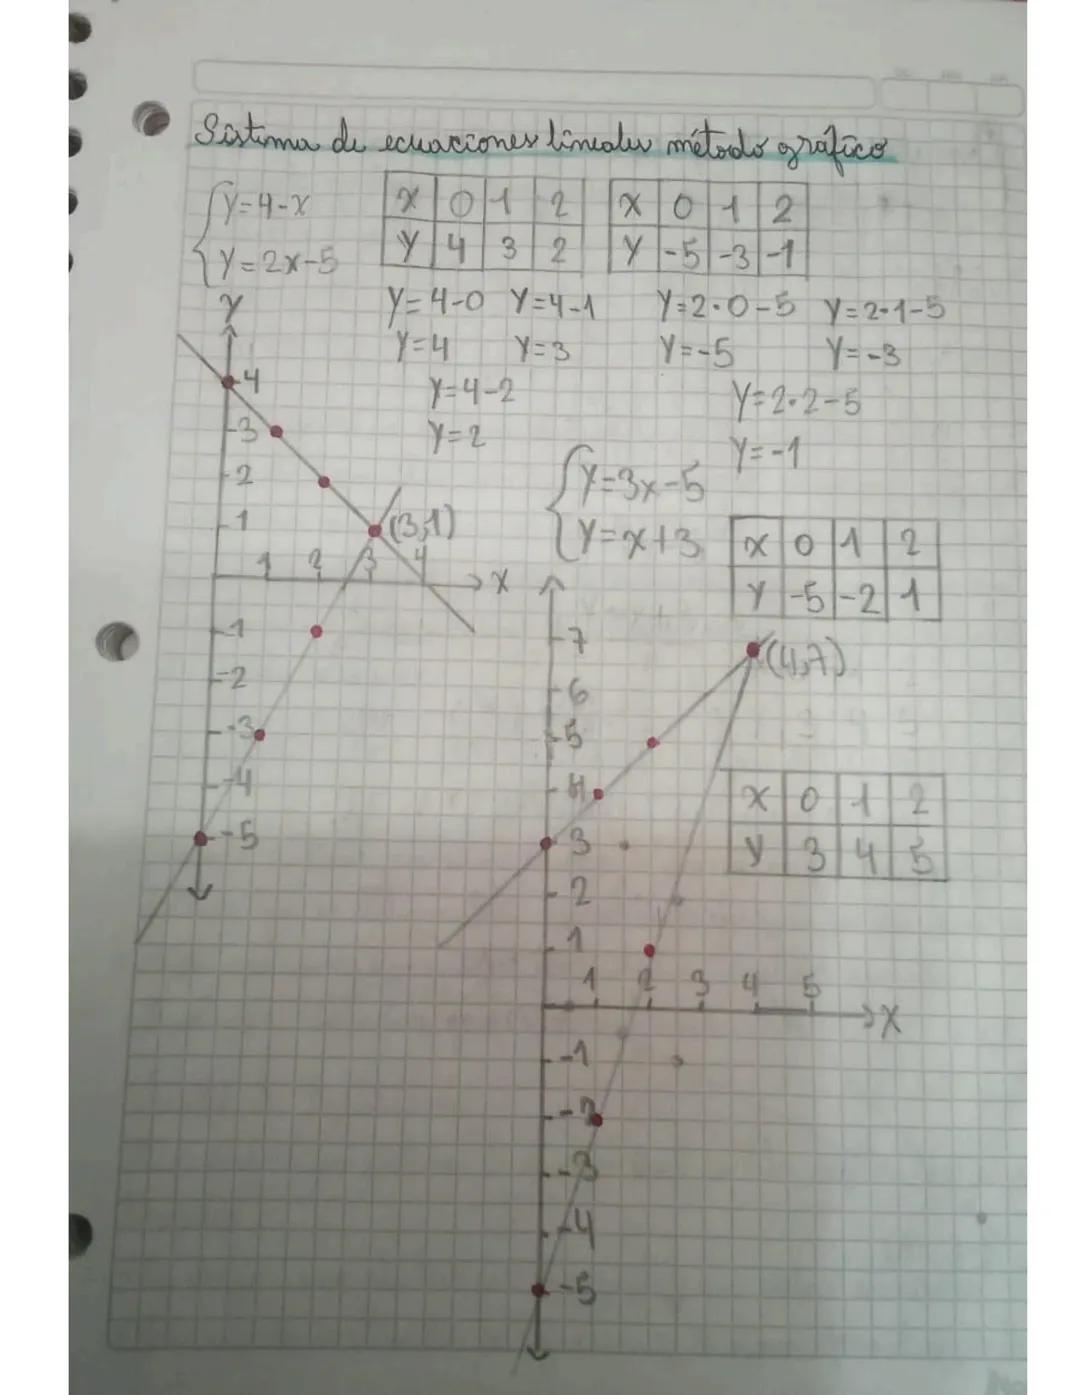 Sistema de ecuaciones lineales método gráfico
y=4-x
y=2x-5
x 0 1 2
y 4 3 2
x 0 1 2
y -5 -3 -1
y=4-0 y=4-1
y=4 y=3
y=4-2
y=2
y=2·0-5 y=2·1-5
y=-5 y=-3
y=2·2-5
y=-1
y
4
3
2
1
(3,1)
1 2 3 4 x
-1
-2
-3
-4
-5
y=3x-5
y=x+3
x 0 1 2
y -5 -2 1
7
(4,7)
6
5
4
3
2
1
x 0 1 2
y 3 4 5
1 2 3 4 5
x
-1
-2
-3
-4
-5